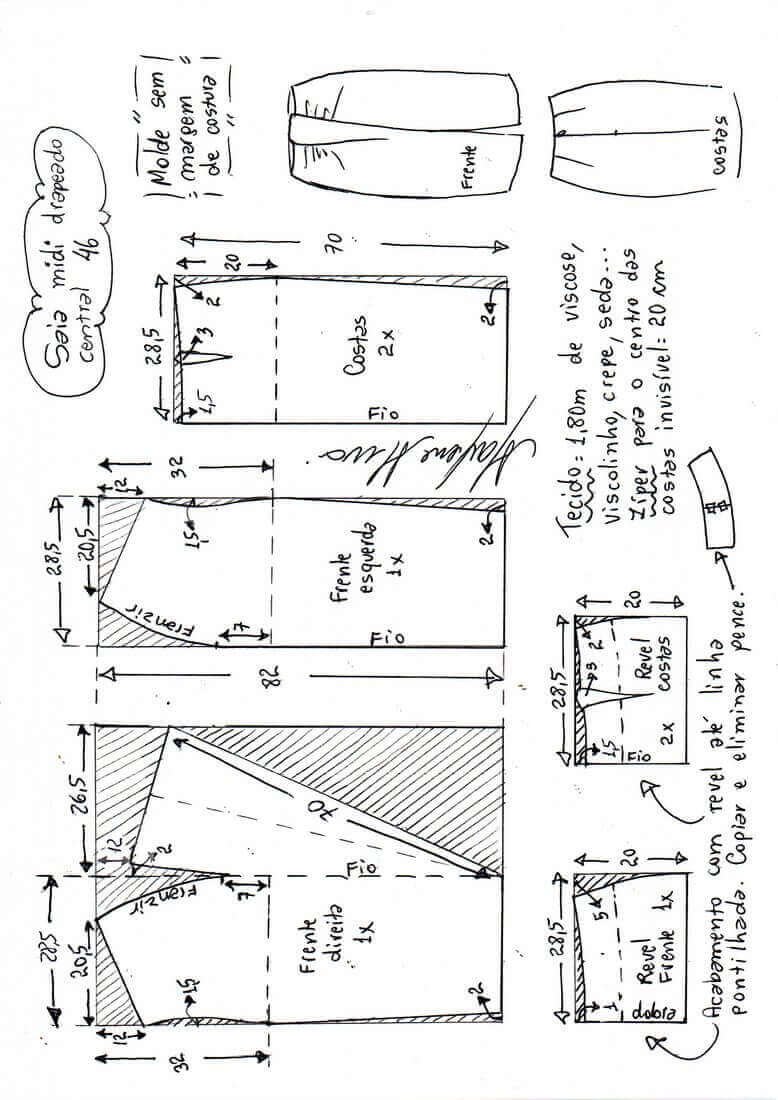 Saia midi drapeado
central 46
"Molde sem"
margem
de costura
Frente
costas
70
20
28,5
2
3
1,5
Costas
2x
2
Fio
32
12
28,5
20,5
1,5
Franzir
Frente
esquerda
1x
2
7
Fio
82
26,5
12
2
70
Fio
Franzir
7
28,5
20,5
Frente
direita
1x
1,5
2
12
32
Tecido = 1,80m de viscose,
viscolinho, crepe, seda...
Zíper para o centro das
costas invisível = 20 cm
28,5
20
2
3
1,5
Revel
costas
2x
Fio
28,5
20
5
1
Revel
Frente 1x
dobra
Acabamento com revel até linha
pontilhada. Copiar e eliminar pence.